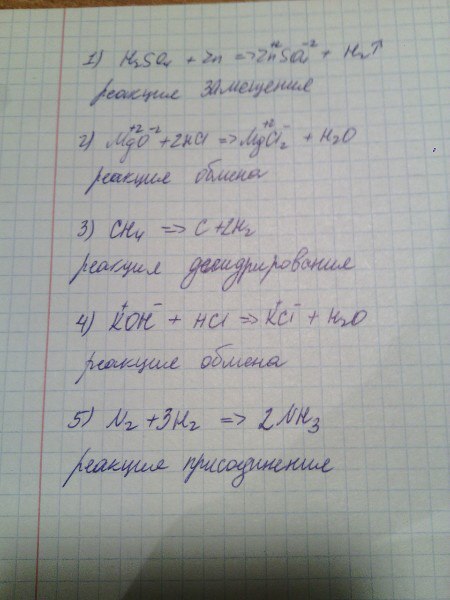 1) H₂SO₄ + Zn => Zn⁺²SO₄⁻² + H₂↑
реакция замещения
2) Mg⁺²O⁻² + 2HCl => Mg⁺²Cl₂⁻ + H₂O
реакция обмена
3) CH₄ => C + 2H₂
реакция
4) K⁺OH⁻ + HCl => K⁺Cl⁻ + H₂O
реакция обмена
5) N₂ + 3H₂ => 2NH₃
реакция присоединения